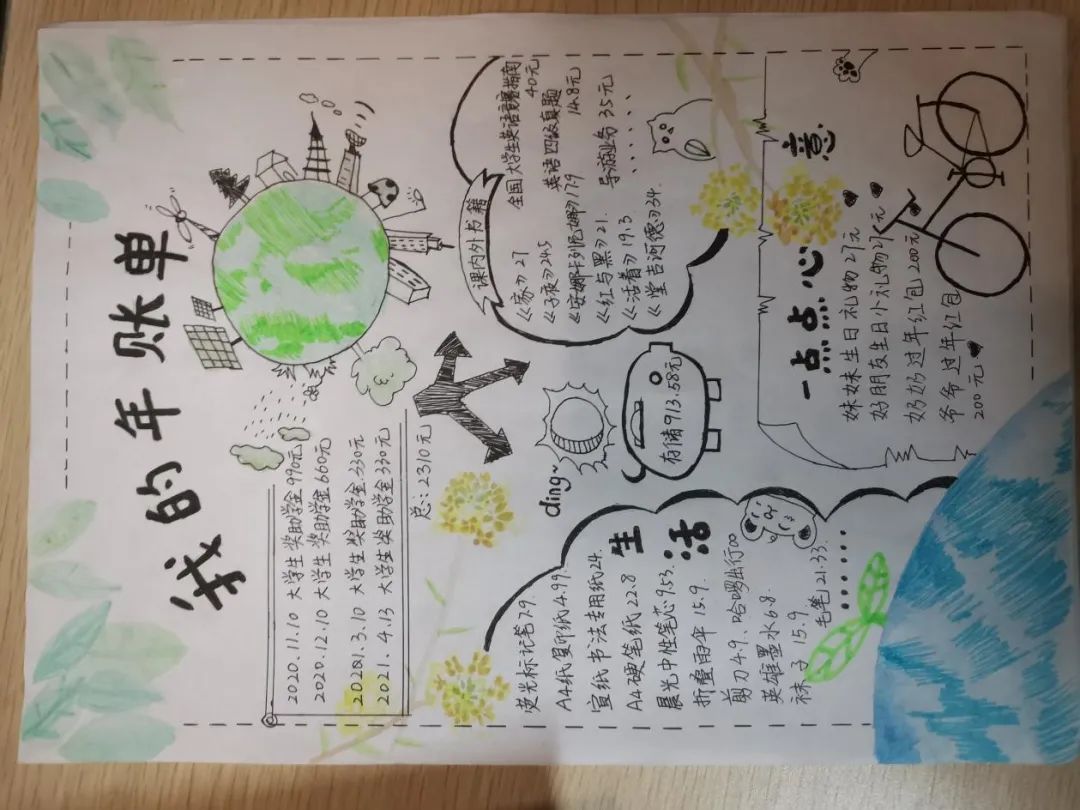 我的年账单
2020.11.10 大学生奖助学金 990元
2020.12.10 大学生奖助学金 660元
2021.3.10 大学生奖助学金 330元
2021.4.13 大学生奖助学金 330元
总:2310元
课内外书籍
全国大学生英语竞赛指南
40元
英语四级真题
14.8元
导游业务 35元
······
《家》27
《子夜》24.5
《安娜卡列尼娜》17.9
《红与黑》21.
《活着》19.3
《堂吉诃德》34.
ding~
存储913.58元
生活
荧光标记笔7.9.
A4纸复印纸14.99.
宣纸书法专用纸24.
A4硬笔纸22.8
晨光中性笔芯9.53.
折叠雨伞 15.9.
剪刀4.9、哈啰出行∞
英雄墨水6.8.
袜子 15.9
毛笔21.33.
······
一点点心意
妹妹生日礼物27元
好朋友生日小礼物25元
奶奶过年红包200元
爷爷过年红包
200元